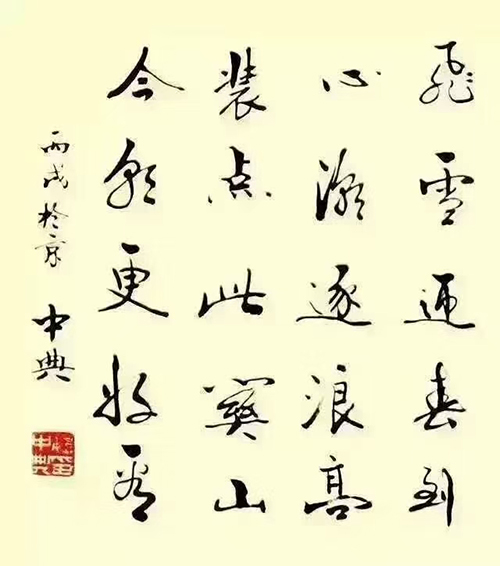 飛雪迎春到
心潮逐浪高
装点此關山
今朝更好看
丙戌於京
中典